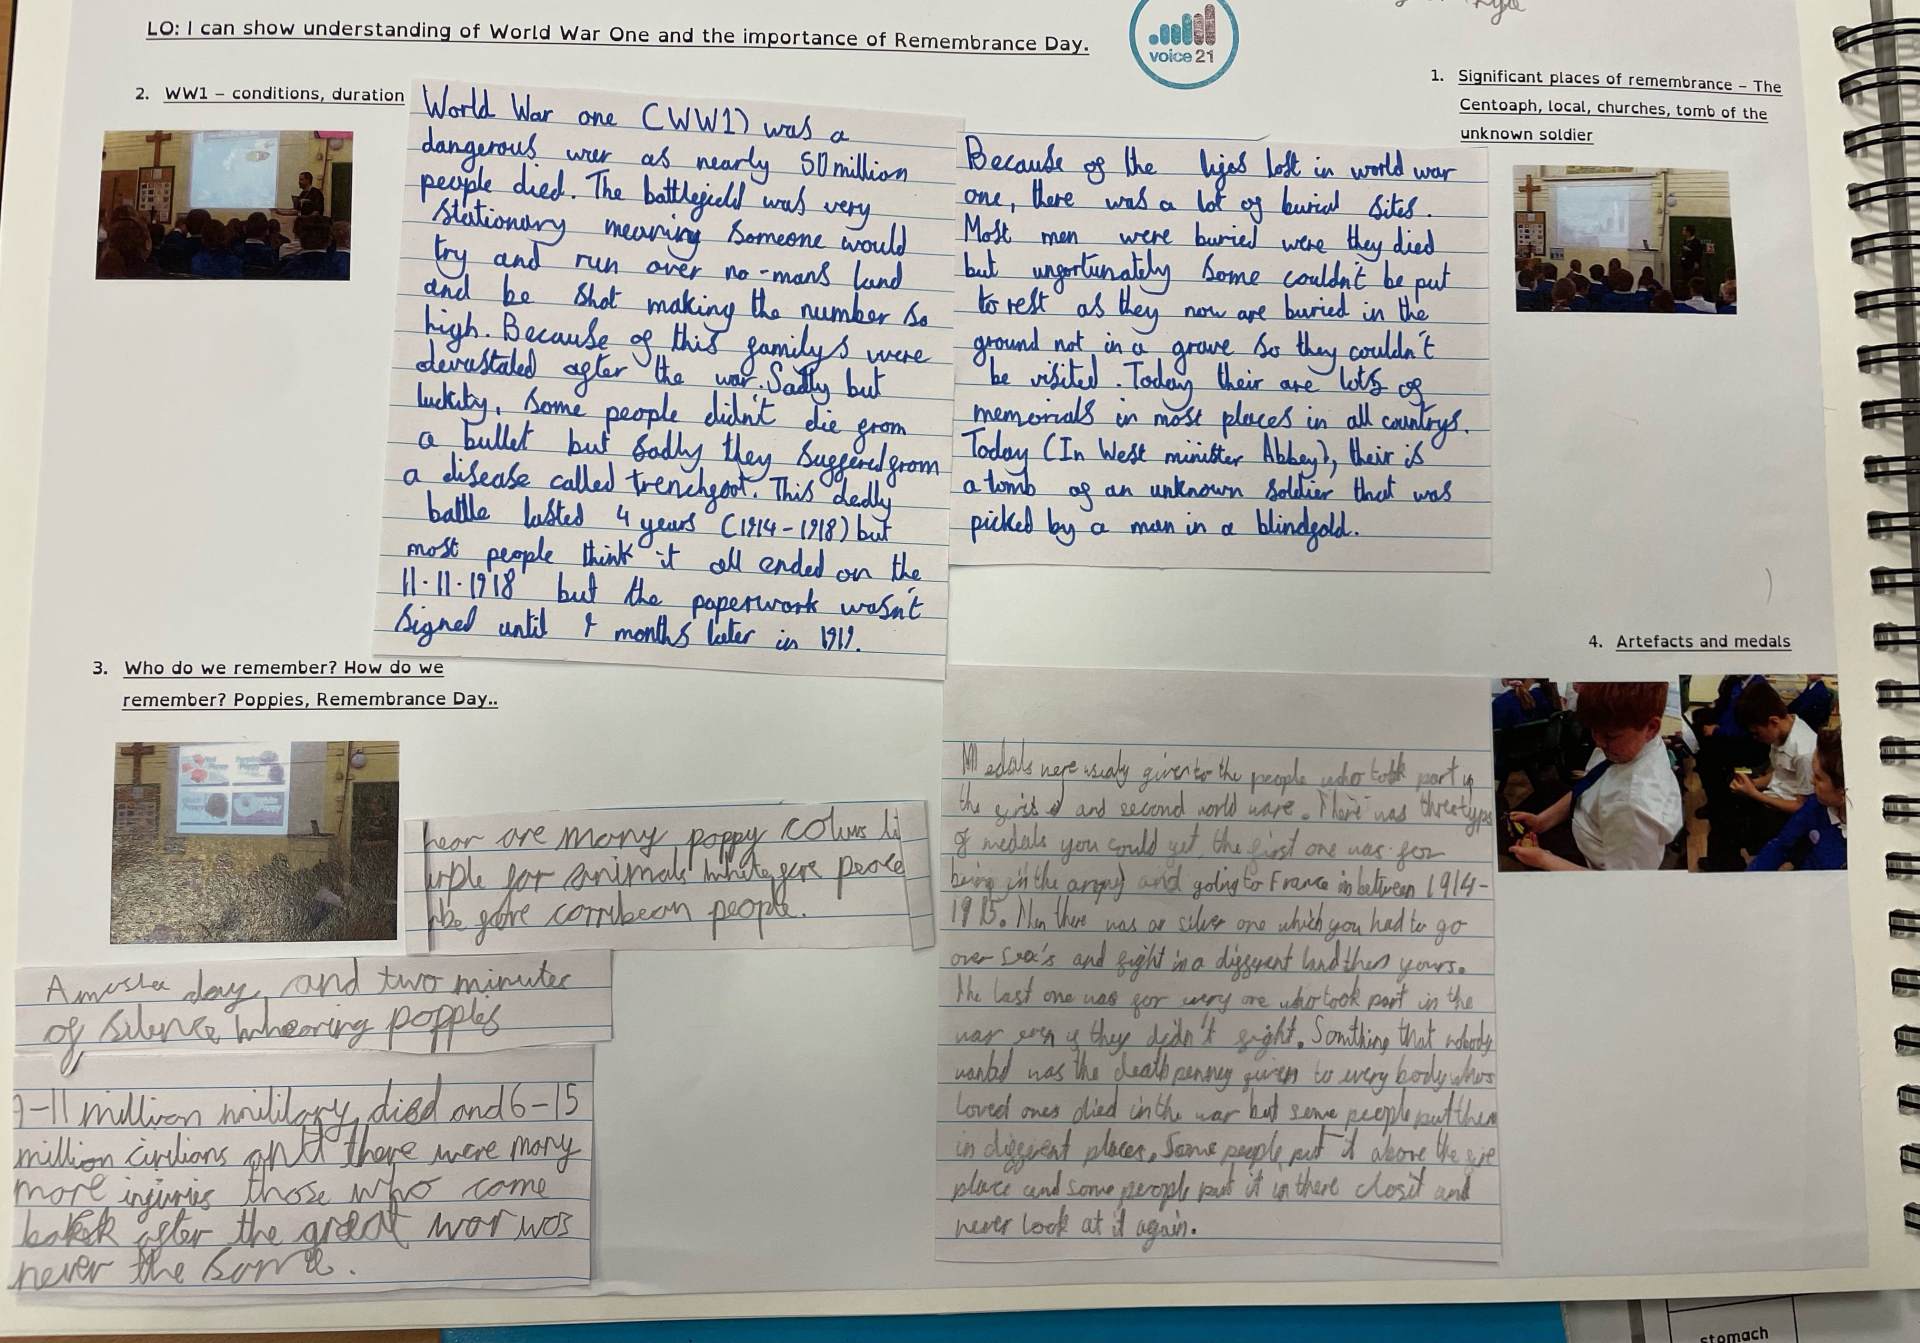 LO: I can show understanding of World War One and the importance of Remembrance Day.
voice 21
1. Significant places of remembrance – The
Centoaph, local, churches, tomb of the
unknown soldier
Because of the lifes lost in world war
one, there was a lot of burial sites.
Most men were buried were they died
but unfortunately some couldn't be put
to rest as they now are buried in the
ground not in a grave so they couldn't
be visited. Today their are lots of
memorials in most places in all countrys.
Today (In West minister Abbey), their is
a tomb of an unknown soldier that was
picked by a man in a blindfold.
2. WW1 – conditions, duration
World War one (WW1) was a
dangerous wer as nearly 50 million
people died. The battlefield was very
stationary meaning someone would
try and run over no-mans land
and be shot making the number so
high. Because of this familys were
devastated after the war. Sadly but
luckity, some people didn't die from
a bullet but sadly they suffered from
a disease called trenchfoot. This dedly
battle lasted 4 years (1914-1918) but
most people think it all ended on the
11.11.1918 but the paperwork wasn't
signed until months later in 1919.
3. Who do we remember? How do we
remember? Poppies, Remembrance Day..
hear are many poppy colurs li
urple for animals white fore peace
fore carribean people.
day, and two minutes
of silence, whearing popples
9-11 million military died and 6-15
million civilians and there were many
more injuries those who came
after the great war was
never the same.
4. Artefacts and medals
Medals were usaly given to the people who took part in
the first and second world ware. There was three typs
of medals you could get, the first one was for
being in the army and going to France in between 1914-
1915. Then there was a silver one which you had to go
over sea's and fight in a different land then yours.
The last one was for every one who took part in the
war even if they didn't fight. Somthing that nobody
wanted was the death penney given to every body whos
loved ones died in the war but some people put them
in different places. Some people put it above the fire
place and some people put it in there closit and
never look at it again.
stomach